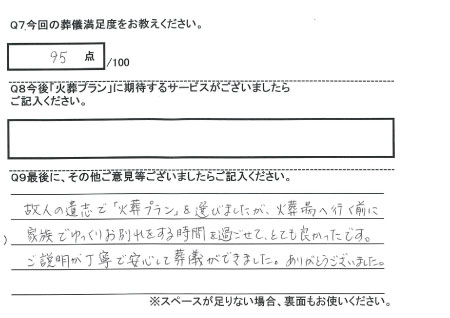 Q7.今回の葬儀満足度をお教えください。
95 点 /100
Q8今後「火葬プラン」に期待するサービスがございましたら
ご記入ください。
Q9最後に、その他ご意見等ございましたらご記入ください。
故人の遺志で「火葬プラン」を選びましたが、火葬場へ行く前に
家族でゆっくりお別れをする時間を過ごせて、とても良かったです。
ご説明が丁寧で安心して葬儀ができました。ありがとうございました。
※スペースが足りない場合、裏面もお使いください。